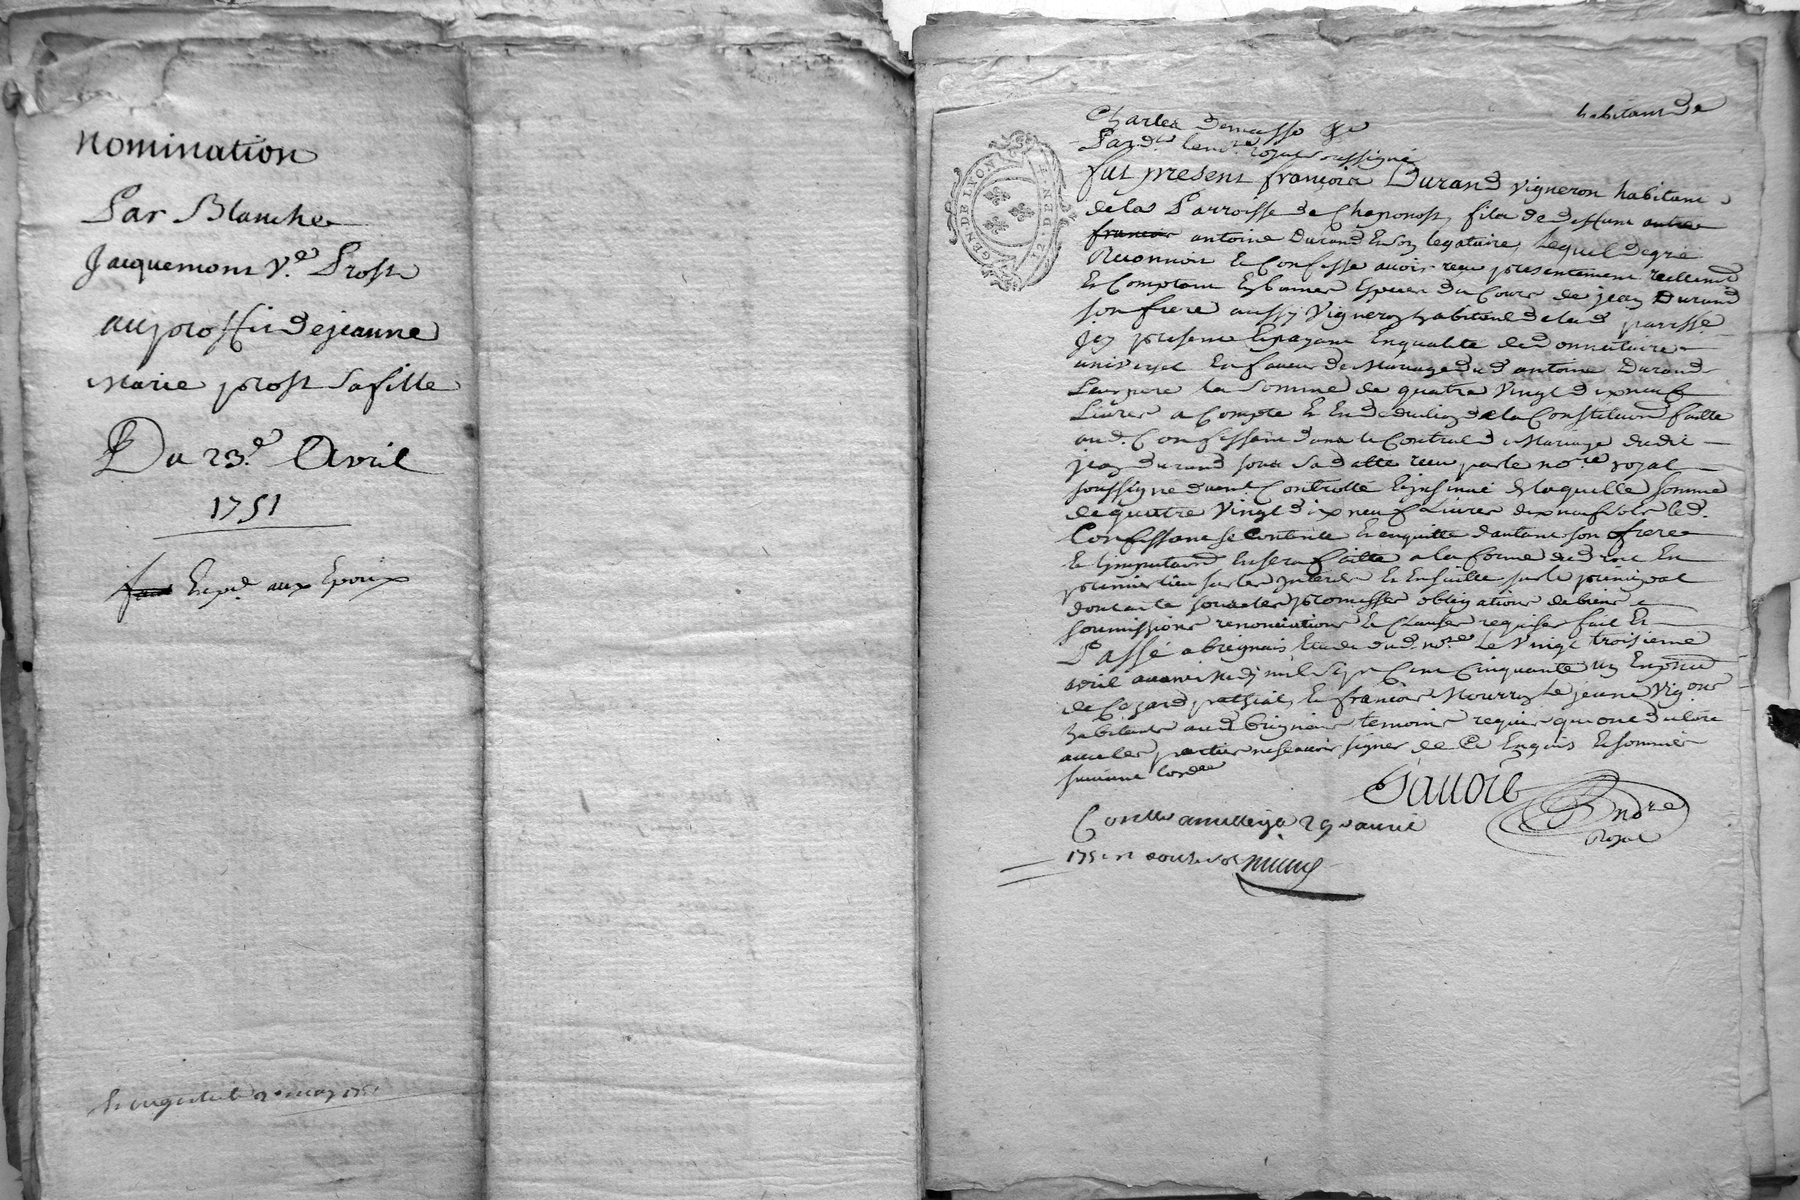 nomination
Par Blanche
Jacquemont V.e Prost
au proffit de jeanne
Marie prost sa fille
Du 23.e Avril
1751
Exped aux Epoux
GEN DE LYON
habitant de
Charles
royal soussigné
fut present françois Durand vigneron habitant
de la Parroisse de Chaponost, fils de deffunt
françois antoine Durand En son legataire, Lequel de gré
Reconnoit et Confesse avoir reçu presentement reellemt
Et Comptant En bonnes Especes du Cours de jean Durand
son frere aussy Vigneron habitant de lad parrisse
Icy present Et payant En qualité de donnataire
universel En faveur de Mariage dud antoine Durand
Leur pere la somme de quatre Vingt dix neuf
Livres a Compte Et En deduction de la Constitution faitte
aud. Confessant dans le Contrat de Mariage dudit
jean durand sous sa datte reçu par le no.re royal
soussigné duemt Controllé Et insinué De laquelle somme
de quatre Vingt dix neuf Livres dix neuf sols led.
Confessant se Contente Et en quitte d'autant son frere
Et l'imputation En sera faitte a la forme du droit En
premier lieu sur les interets Et Ensuitte sur le principal
dont acte sous les promesses obligations de biens
soumissions renonciations Et Clauses requises fait Et
Passé a brignais Etude dud. no.re Le Vingt troisieme
avril avant Midy mil sept Cent Cinquante un En presence
de Et françois Nourry Le jeune Vigrons
habitants aud brignais temoins requis qui ont declaré
avec les parties ne scavoir signer de Ce Enquis Et sommés
suivant L'ordce
Andre
Royal
Conllé a 29 avril
1751 R douze sols